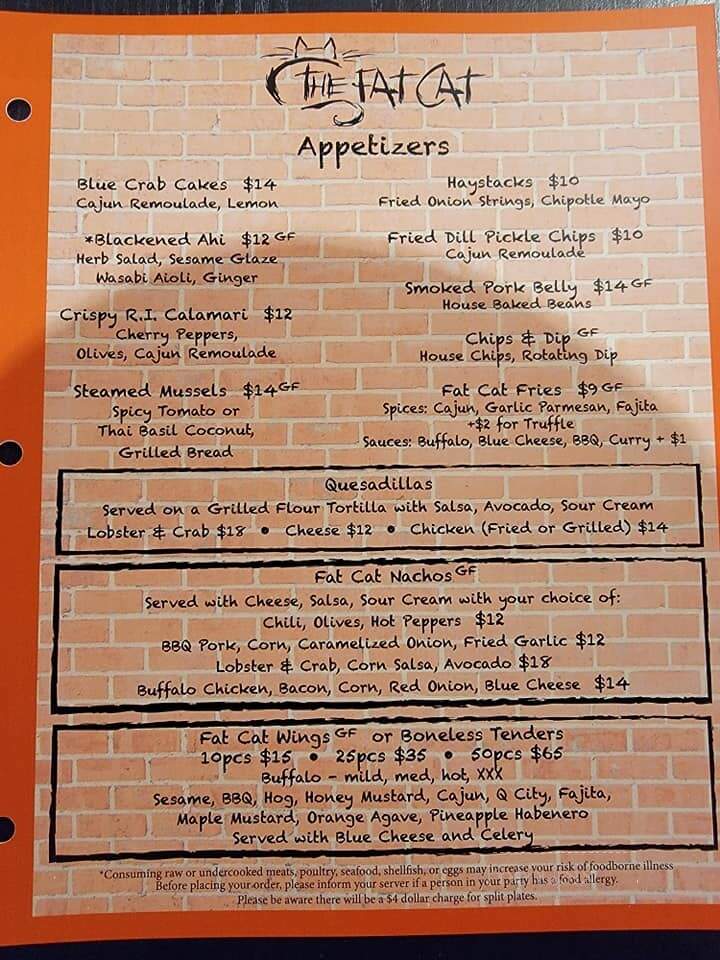 THE FAT CAT
Appetizers
Blue Crab Cakes $14
Cajun Remoulade, Lemon
*Blackened Ahi $12 GF
Herb Salad, Sesame Glaze
Wasabi Aioli, Ginger
Crispy R.I. Calamari $12
Cherry Peppers,
Olives, Cajun Remoulade
Steamed Mussels $14 GF
Spicy Tomato or
Thai Basil Coconut,
Grilled Bread
Haystacks $10
Fried Onion Strings, Chipotle Mayo
Fried Dill Pickle Chips $10
Cajun Remoulade
Smoked Pork Belly $14 GF
House Baked Beans
Chips & Dip GF
House Chips, Rotating Dip
Fat Cat Fries $9 GF
Spices: Cajun, Garlic Parmesan, Fajita
+$2 for Truffle
Sauces: Buffalo, Blue Cheese, BBQ, Curry + $1
Quesadillas
Served on a Grilled Flour Tortilla with Salsa, Avocado, Sour Cream
Lobster & Crab $18 • Cheese $12 • Chicken (Fried or Grilled) $14
Fat Cat Nachos GF
Served with Cheese, Salsa, Sour Cream with your choice of:
Chili, Olives, Hot Peppers $12
BBQ Pork, Corn, Caramelized Onion, Fried Garlic $12
Lobster & Crab, Corn Salsa, Avocado $18
Buffalo Chicken, Bacon, Corn, Red Onion, Blue Cheese $14
Fat Cat Wings GF or Boneless Tenders
10pcs $15 • 25pcs $35 • 50pcs $65
Buffalo - mild, med, hot, XXX
Sesame, BBQ, Hog, Honey Mustard, Cajun, Q City, Fajita,
Maple Mustard, Orange Agave, Pineapple Habenero
Served with Blue Cheese and Celery
*Consuming raw or undercooked meats, poultry, seafood, shellfish, or eggs may increase your risk of foodborne illness
Before placing your order, please inform your server if a person in your party has a food allergy.
Please be aware there will be a $4 dollar charge for split plates.